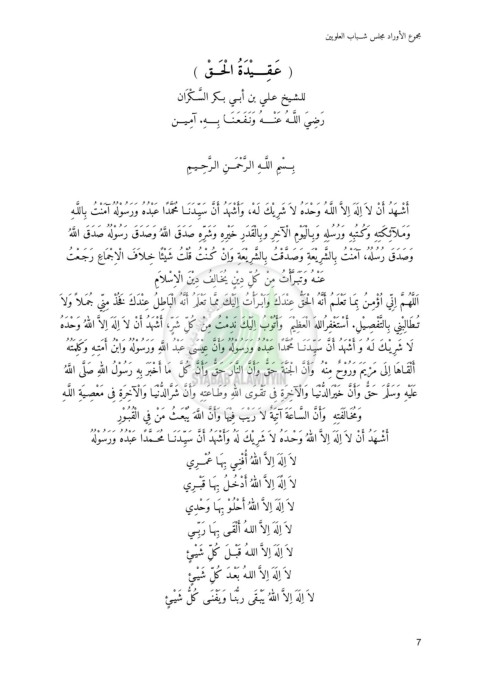 مجموع الأوراد مجلس شباب العلويين
( عَقِيْدَةُ الْحَقّْ )
للشيخ علي بن أبي بكر السَّكْرَان
رَضِيَ اللَّهُ عَنْهُ وَنَفَعَنَا بِهِ. آمِين
بِسْمِ اللَّهِ الرَّحْمَنِ الرَّحِيمِ
أَشْهَدُ أَنْ لاَ إِلَهَ إِلاَّ اللَّهُ وَحْدَهُ لاَ شَرِيْكَ لَهُ، وَأَشْهَدُ أَنَّ سَيِّدَنَا مُحَمَّدًا عَبْدُهُ وَرَسُوْلُهُ آمَنْتُ بِاللَّهِ
وَمَلآئِكَتِهِ وَكُتُبِهِ وَرُسُلِهِ وَبِالْيَوْمِ الْآخِرِ وَبِالْقَدَرِ خَيْرِهِ وَشَرِّهِ صَدَقَ اللَّهُ وَصَدَقَ رَسُوْلُهُ صَدَقَ اللَّهُ
وَصَدَقَ رُسُلُهُ، آمَنْتُ بِالشَّرِيْعَةِ وَصَدَّقْتُ بِالشَّرِيْعَةِ وَإِنْ كُنْتُ قُلْتُ شَيْئًا خِلاَفَ الْإِجْمَاعِ رَجَعْتُ
عَنْهُ وَتَبَرَّأْتُ مِنْ كُلِّ دِيْنٍ يُخَالِفُ دِيْنَ الْإِسْلاَمِ
اَللَّهُمَّ إِنِّي أُؤْمِنُ بِمَا تَعْلَمُ أَنَّهُ الْحَقُّ عِنْدَكَ وَأَبْرَأُ إِلَيْكَ مِمَّا تَعْلَمُ أَنَّهُ الْبَاطِلُ عِنْدَكَ فَخُذْ مِنِّي جُمَلاً وَلاَ
تُطَالِبْنِي بِالتَّفْصِيلِ. أَسْتَغْفِرُاللهَ الْعَظِيْمَ وَأَتُوْبُ إِلَيْكَ نَدِمْتُ مِنْ كُلِّ شَرٍّ، أَشْهَدُ أَنْ لاَ إِلَهَ إِلاَّ اللهُ وَحْدَهُ
لاَ شَرِيْكَ لَهُ وَ أَشْهَدُ أَنَّ سَيِّدَنَـا مُحَمَّدًا عَبْدُهُ وَرَسُوْلُهُ وَأَنَّ عِيْسَى عَبْدُ اللَّهِ وَرَسُوْلُهُ وَابْنُ أَمَتِهِ وَكَلِمَتُهُ
أَلْقَـاهَا إِلَى مَرْيَمَ وَرُوْحٌ مِنْهُ وَأَنَّ الْجَنَّةَ حَقٌّ وَأَنَّ النَّارَ حَقٌّ وَأَنَّ كُلَّ مَا أَخْبَرَ بِهِ رَسُوْلُ اللهِ صَلَّى اللهُ
عَلَيْهِ وَسَلَّمَ حَقٌّ وَأَنَّ خَيْرَالدُّنْيَا وَالْآخِرَةِ فِي تَقْوَى اللهِ وَطَاعَتِهِ وَأَنَّ شَرَّالدُّنْيَا وَالْآخِرَةِ فِي مَعْصِيَةِ اللَّهِ
وَمُخَالَفَتِهِ وَأَنَّ السَّاعَةَ آتِيَةٌ لاَ رَيْبَ فِيْهَا وَأَنَّ اللهَ يَبْعَثُ مَنْ فِي الْقُبُوْرِ
أَشْهَدُ أَنْ لاَ إِلَهَ إِلاَّ اللهُ وَحْدَهُ لاَ شَرِيْكَ لَهُ وَأَشْهَدُ أَنَّ سَيِّدَنَـا مُحَمَّدًا عَبْدُهُ وَرَسُوْلُهُ
لاَ إِلَهَ إِلاَّ اللهُ أُفْنِي بِهَا عُمْرِي
لاَ إِلَهَ إِلاَّ اللهُ أَدْخُلُ بِهَا قَبْرِي
لاَ إِلَهَ إِلاَّ اللهُ أَخْلُوْ بِهَا وَحْدِي
لاَ إِلَهَ إِلاَّ اللهُ أَلْقَى بِهَا رَبِّي
لاَ إِلَهَ إِلاَّ اللهُ قَبْلَ كُلِّ شَيْئٍ
لاَ إِلَهَ إِلاَّ اللهُ بَعْدَ كُلِّ شَيْئٍ
لاَ إِلَهَ إِلاَّ اللهُ يَبْقَى رَبُّنَا وَيَفْنَى كُلُّ شَيْئٍ
SYABAB ALAWIYYIN
7